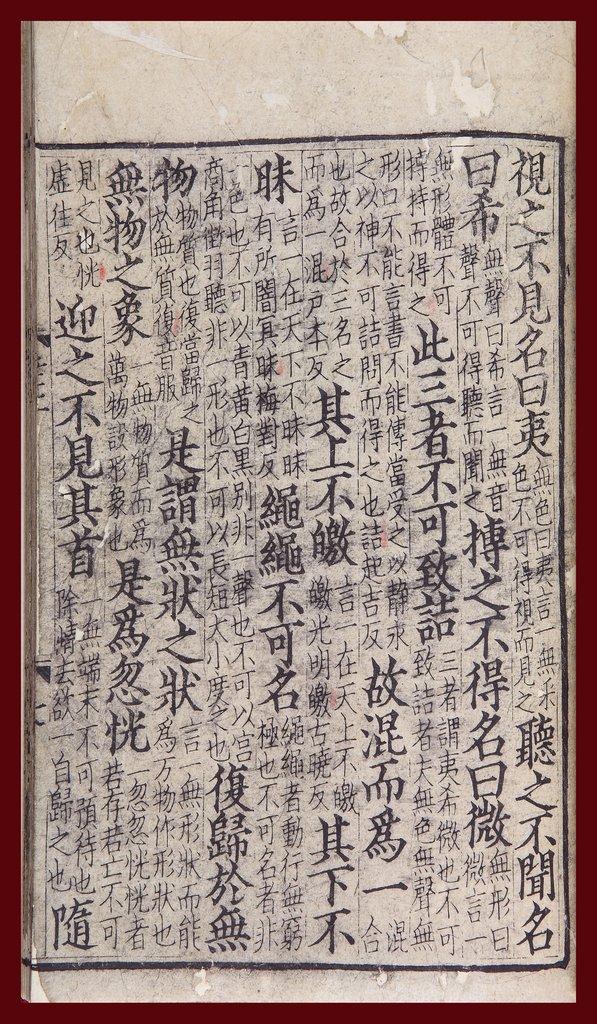 視之不見名曰夷無色曰夷言一無采色不可得視而見之聽之不聞名
曰希無聲曰希言一無音聲不可得聽而聞之搏之不得名曰微無形曰微言一
無形體不可搏持而得之此三者不可致詰三者謂夷希微也不可致詰者夫無色無聲無
形口不能言書不能傳當受之以靜求之以神不可詰問而得之也詰起吉反故混而爲一混合
也故合於三名之而爲一混戸本反其上不皦言一在天上不皦皦光明皦古曉反其下不
昧言一在天下不昧昧有所闇冥昧梅對反繩繩不可名繩繩者動行無窮極也不可名者非
一色也不可以青黃白黒別非一聲也不可以宮商角徵羽聽非一形也不可以長短大小度之也復歸於無
物物質也復當歸之於無質復音服是謂無狀之狀言一無形狀而能爲万物作形狀也
無物之象一無物質而爲萬物設形象也是爲忽恍一忽忽恍恍者若存若亡不可
見之也恍虛往反迎之不見其首一無端末不可預待也除情去欲一自歸之也隨